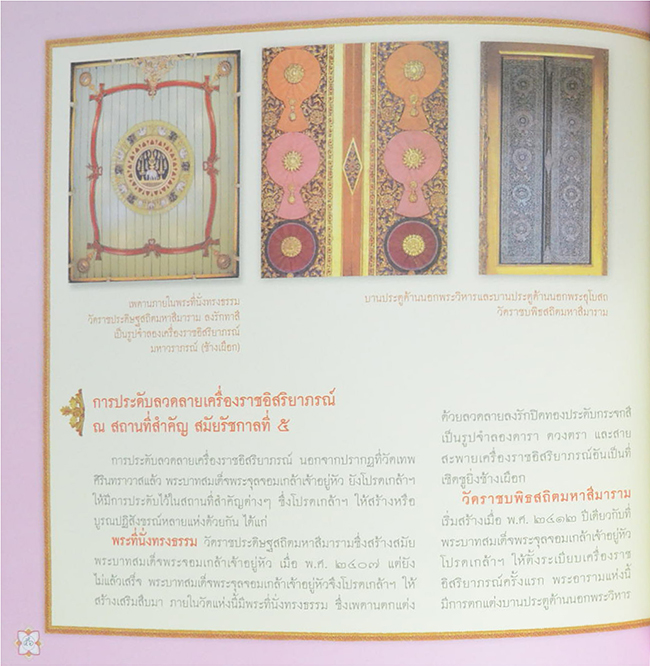 เพดานภายในพระที่นั่งทรงธรรม
วัดราชประดิษฐสถิตมหาสีมาราม ลงรักทาสี
เป็นรูปจำลองเครื่องราชอิสริยาภรณ์
มหาวราภรณ์ (ช้างเผือก)
บานประตูด้านนอกพระวิหารและบานประตูด้านนอกพระอุโบสถ
วัดราชบพิธสถิตมหาสีมาราม
การประดับลวดลายเครื่องราชอิสริยาภรณ์
ณ สถานที่สำคัญ สมัยรัชกาลที่ ๕
การประดับลวดลายเครื่องราชอิสริยาภรณ์ นอกจากปรากฏที่วัดเทพ
ศิรินทราวาสแล้ว พระบาทสมเด็จพระจุลจอมเกล้าเจ้าอยู่หัว ยังโปรดเกล้าฯ
ให้มีการประดับไว้ในสถานที่สำคัญต่างๆ ซึ่งโปรดเกล้าฯ ให้สร้างหรือ
บูรณปฏิสังขรณ์หลายแห่งด้วยกัน ได้แก่
พระที่นั่งทรงธรรม วัดราชประดิษฐสถิตมหาสีมารามซึ่งสร้างสมัย
พระบาทสมเด็จพระจอมเกล้าเจ้าอยู่หัว เมื่อ พ.ศ. ๒๔๐๗ แต่ยัง
ไม่แล้วเสร็จ พระบาทสมเด็จพระจุลจอมเกล้าเจ้าอยู่หัวจึงโปรดเกล้าฯ ให้
สร้างเสริมสืบมา ภายในวัดแห่งนี้มีพระที่นั่งทรงธรรม ซึ่งเพดานตกแต่ง
ด้วยลวดลายลงรักปิดทองประดับกระจกสี
เป็นรูปจำลองดารา ดวงตรา และสาย
สะพายเครื่องราชอิสริยาภรณ์อันเป็นที่
เชิดชูยิ่งช้างเผือก
วัดราชบพิธสถิตมหาสีมาราม
เริ่มสร้างเมื่อ พ.ศ. ๒๔๑๒ ปีเดียวกับที่
พระบาทสมเด็จพระจุลจอมเกล้าเจ้าอยู่หัว
โปรดเกล้าฯ ให้ตั้งระเบียบเครื่องราช
อิสริยาภรณ์ครั้งแรก พระอารามแห่งนี้
มีการตกแต่งบานประตูด้านนอกพระวิหาร